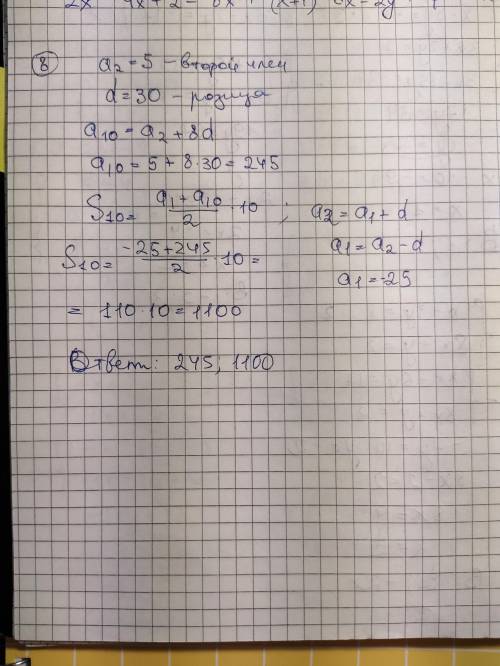 8 a₂ = 5 – второй член
d = 30 – розица
a₁₀ = a₂ + 8d
a₁₀ = 5 + 8·30 = 245
S₁₀ = (a₁ + a₁₀)/2 · 10 ; a₂ = a₁ + d
S₁₀ = (-25 + 245)/2 · 10 = a₁ = a₂ - d
a₁ = -25
= 110·10 = 1100
Ответ: 245, 1100